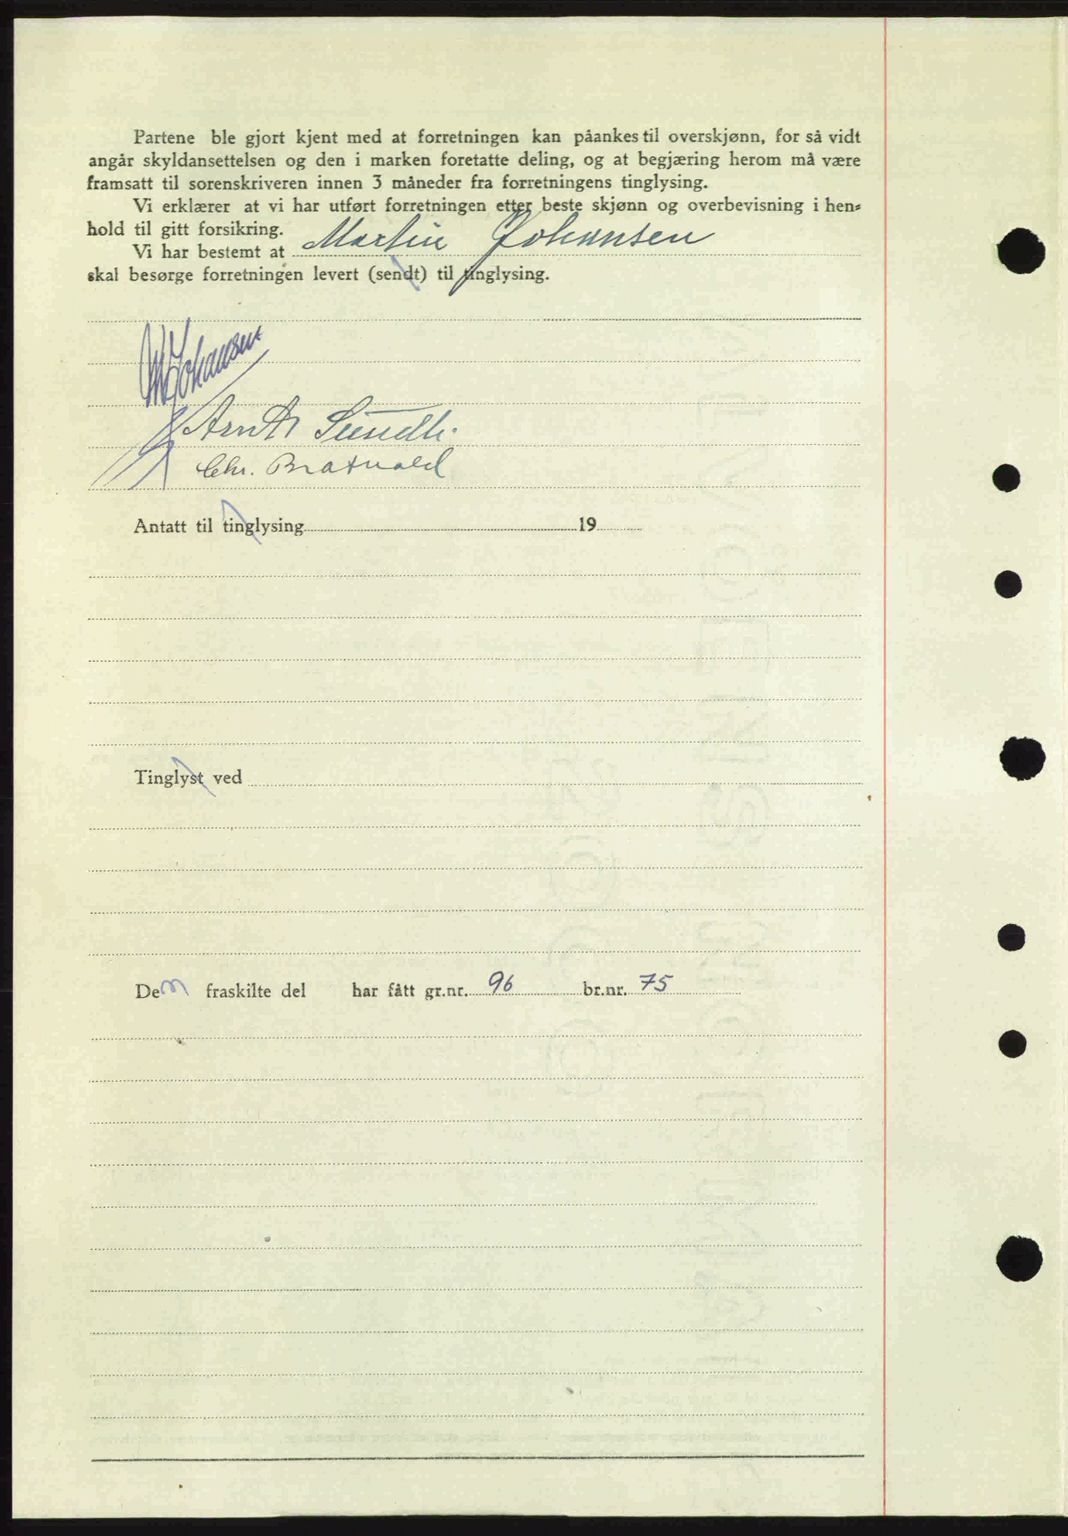 Partene ble gjort kjent med at forretningen kan påankes til overskjønn, for så vidt
angår skyldansettelsen og den i marken foretatte deling, og at begjæring herom må være
framsatt til sorenskriveren innen 3 måneder fra forretningens tinglysing.
Vi erklærer at vi har utført forretningen etter beste skjønn og overbevisning i hen-
hold til gitt forsikring.
Vi har bestemt at Martin Johansen
skal besørge forretningen levert (sendt) til tinglysing.
M Johansen
Arnt Sundli
Chr. Bratvold
Antatt til tinglysing 19
Tinglyst ved
Den fraskilte del har fått gr.nr. 96 br.nr. 75